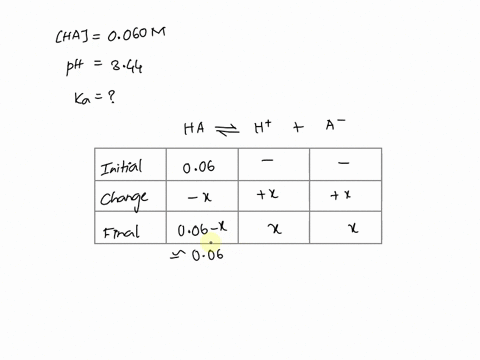 [HA] = 0.060 M
pH = 3.44
Ka = ?
HA ⇌ H⁺ + A⁻
Initial 0.06 – –
Change -x +x +x
Final 0.06-x x x
≃ 0.06